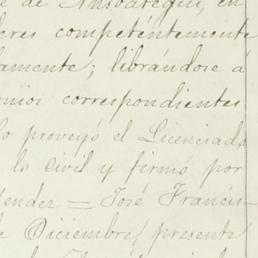 e de Ansoategui, en
eres competentemente
lamente; librandose á
nsior correspondientes
lo proveyó el Licenciado
lo civil y firmó por
fender = José Francis-
e Diciembre/ presente